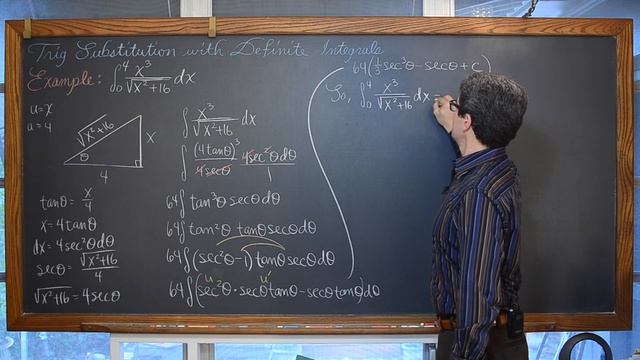 Trig Substitution with Definite Integrals
Example: ∫₀⁴ x³/√(x²+16) dx
u = x
a = 4
√(x²+16)
x
θ
4
tanθ = x/4
x = 4tanθ
dx = 4sec²θdθ
secθ = √(x²+16)/4
√(x²+16) = 4secθ
∫ x³/√(x²+16) dx
∫ (4tanθ)³/4secθ 4sec²θdθ/1
64∫ tan³θ secθ dθ
64∫ tan²θ tanθ secθ dθ
64∫ (sec²θ-1) tanθ secθ dθ
u u'
64∫ (sec²θ · secθ tanθ - secθ tanθ) dθ
64(1/3 sec³θ - secθ + C)
So, ∫₀⁴ x³/√(x²+16) dx =